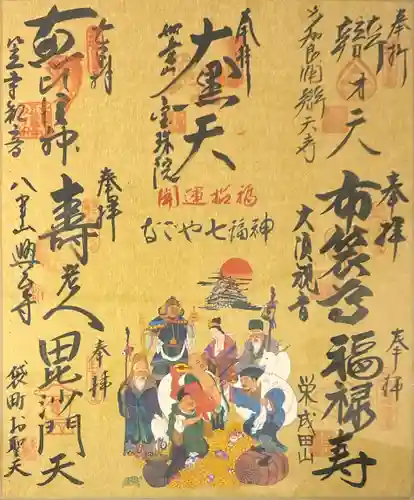 奉拝
辯才天
奉拝
布袋尊
大須観音
奉拝
福禄寿
栄成田山
奉拝
大黒天
宝珠院
福招運開
なごや七福神
奉拝
恵比須神
笠寺観音
奉拝
寿老人
八事山興正寺
奉拝
毘沙門天
袋町お聖天